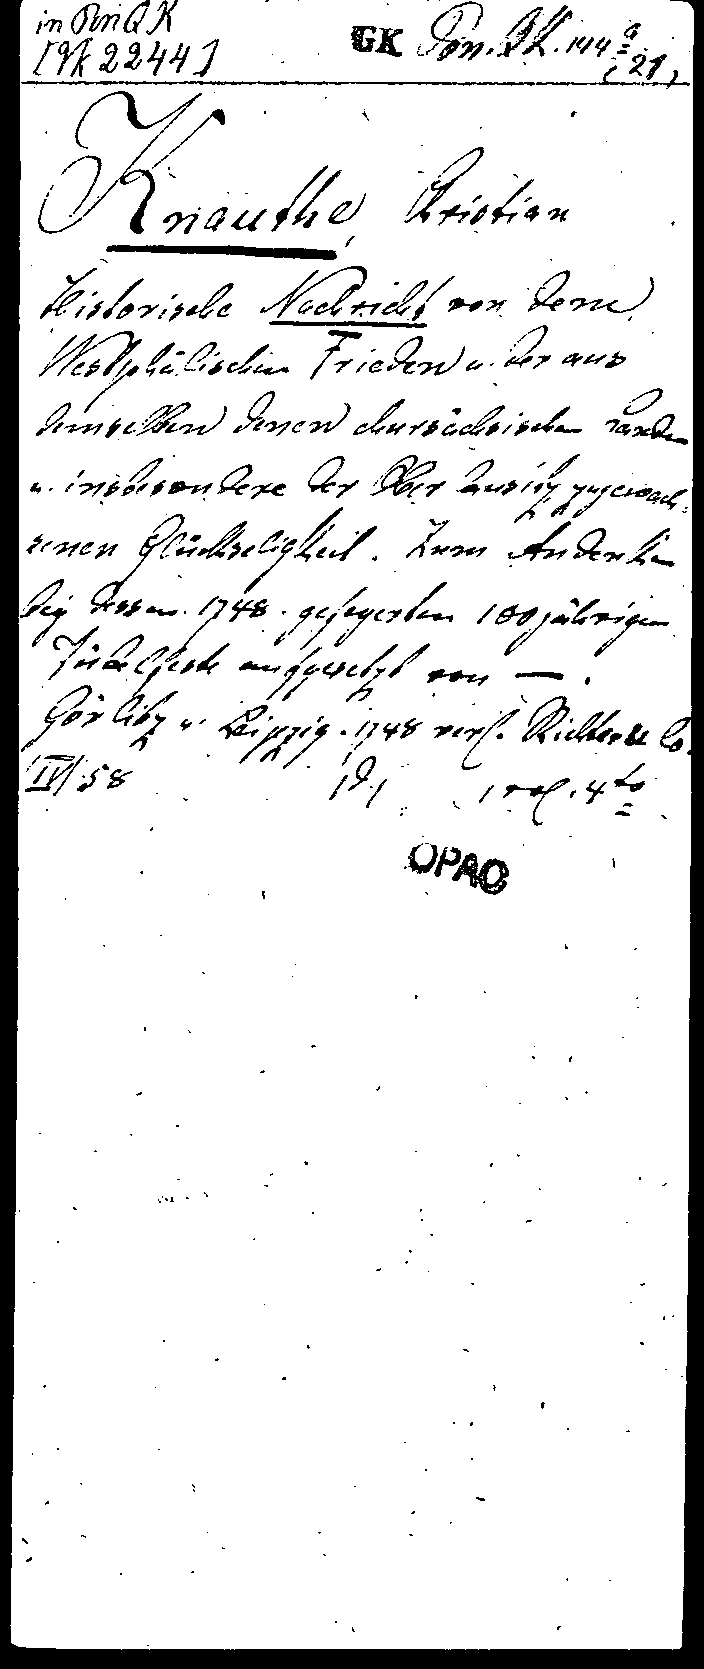 in Pon Q K
[Yk 2244]
GK Pon. QK. 144 a
(21)
Knauthe, Christian
Historische Nachricht von dem
Westphälischen Frieden u. der aus
demselben denen chursächsischen Landen
u. insbesondere der Ober Lausitz zugewach-
senen Glückseligkeit. Zum Andenken
des 1748. gefeyerten 100jährigen
Jubelfests aufgesetzt von —.
Görlitz u. Leipzig. 1748 verl. Richter &c Co.
IV, 58 1 vol. 4to
OPAC